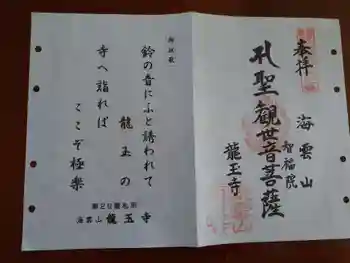 奉拝
海雲山
智福院
聖観世音菩薩
龍王寺
御詠歌
鈴の音にふと誘われて
龍王の
寺へ詣れば
ここぞ極楽
海雲山 龍王寺